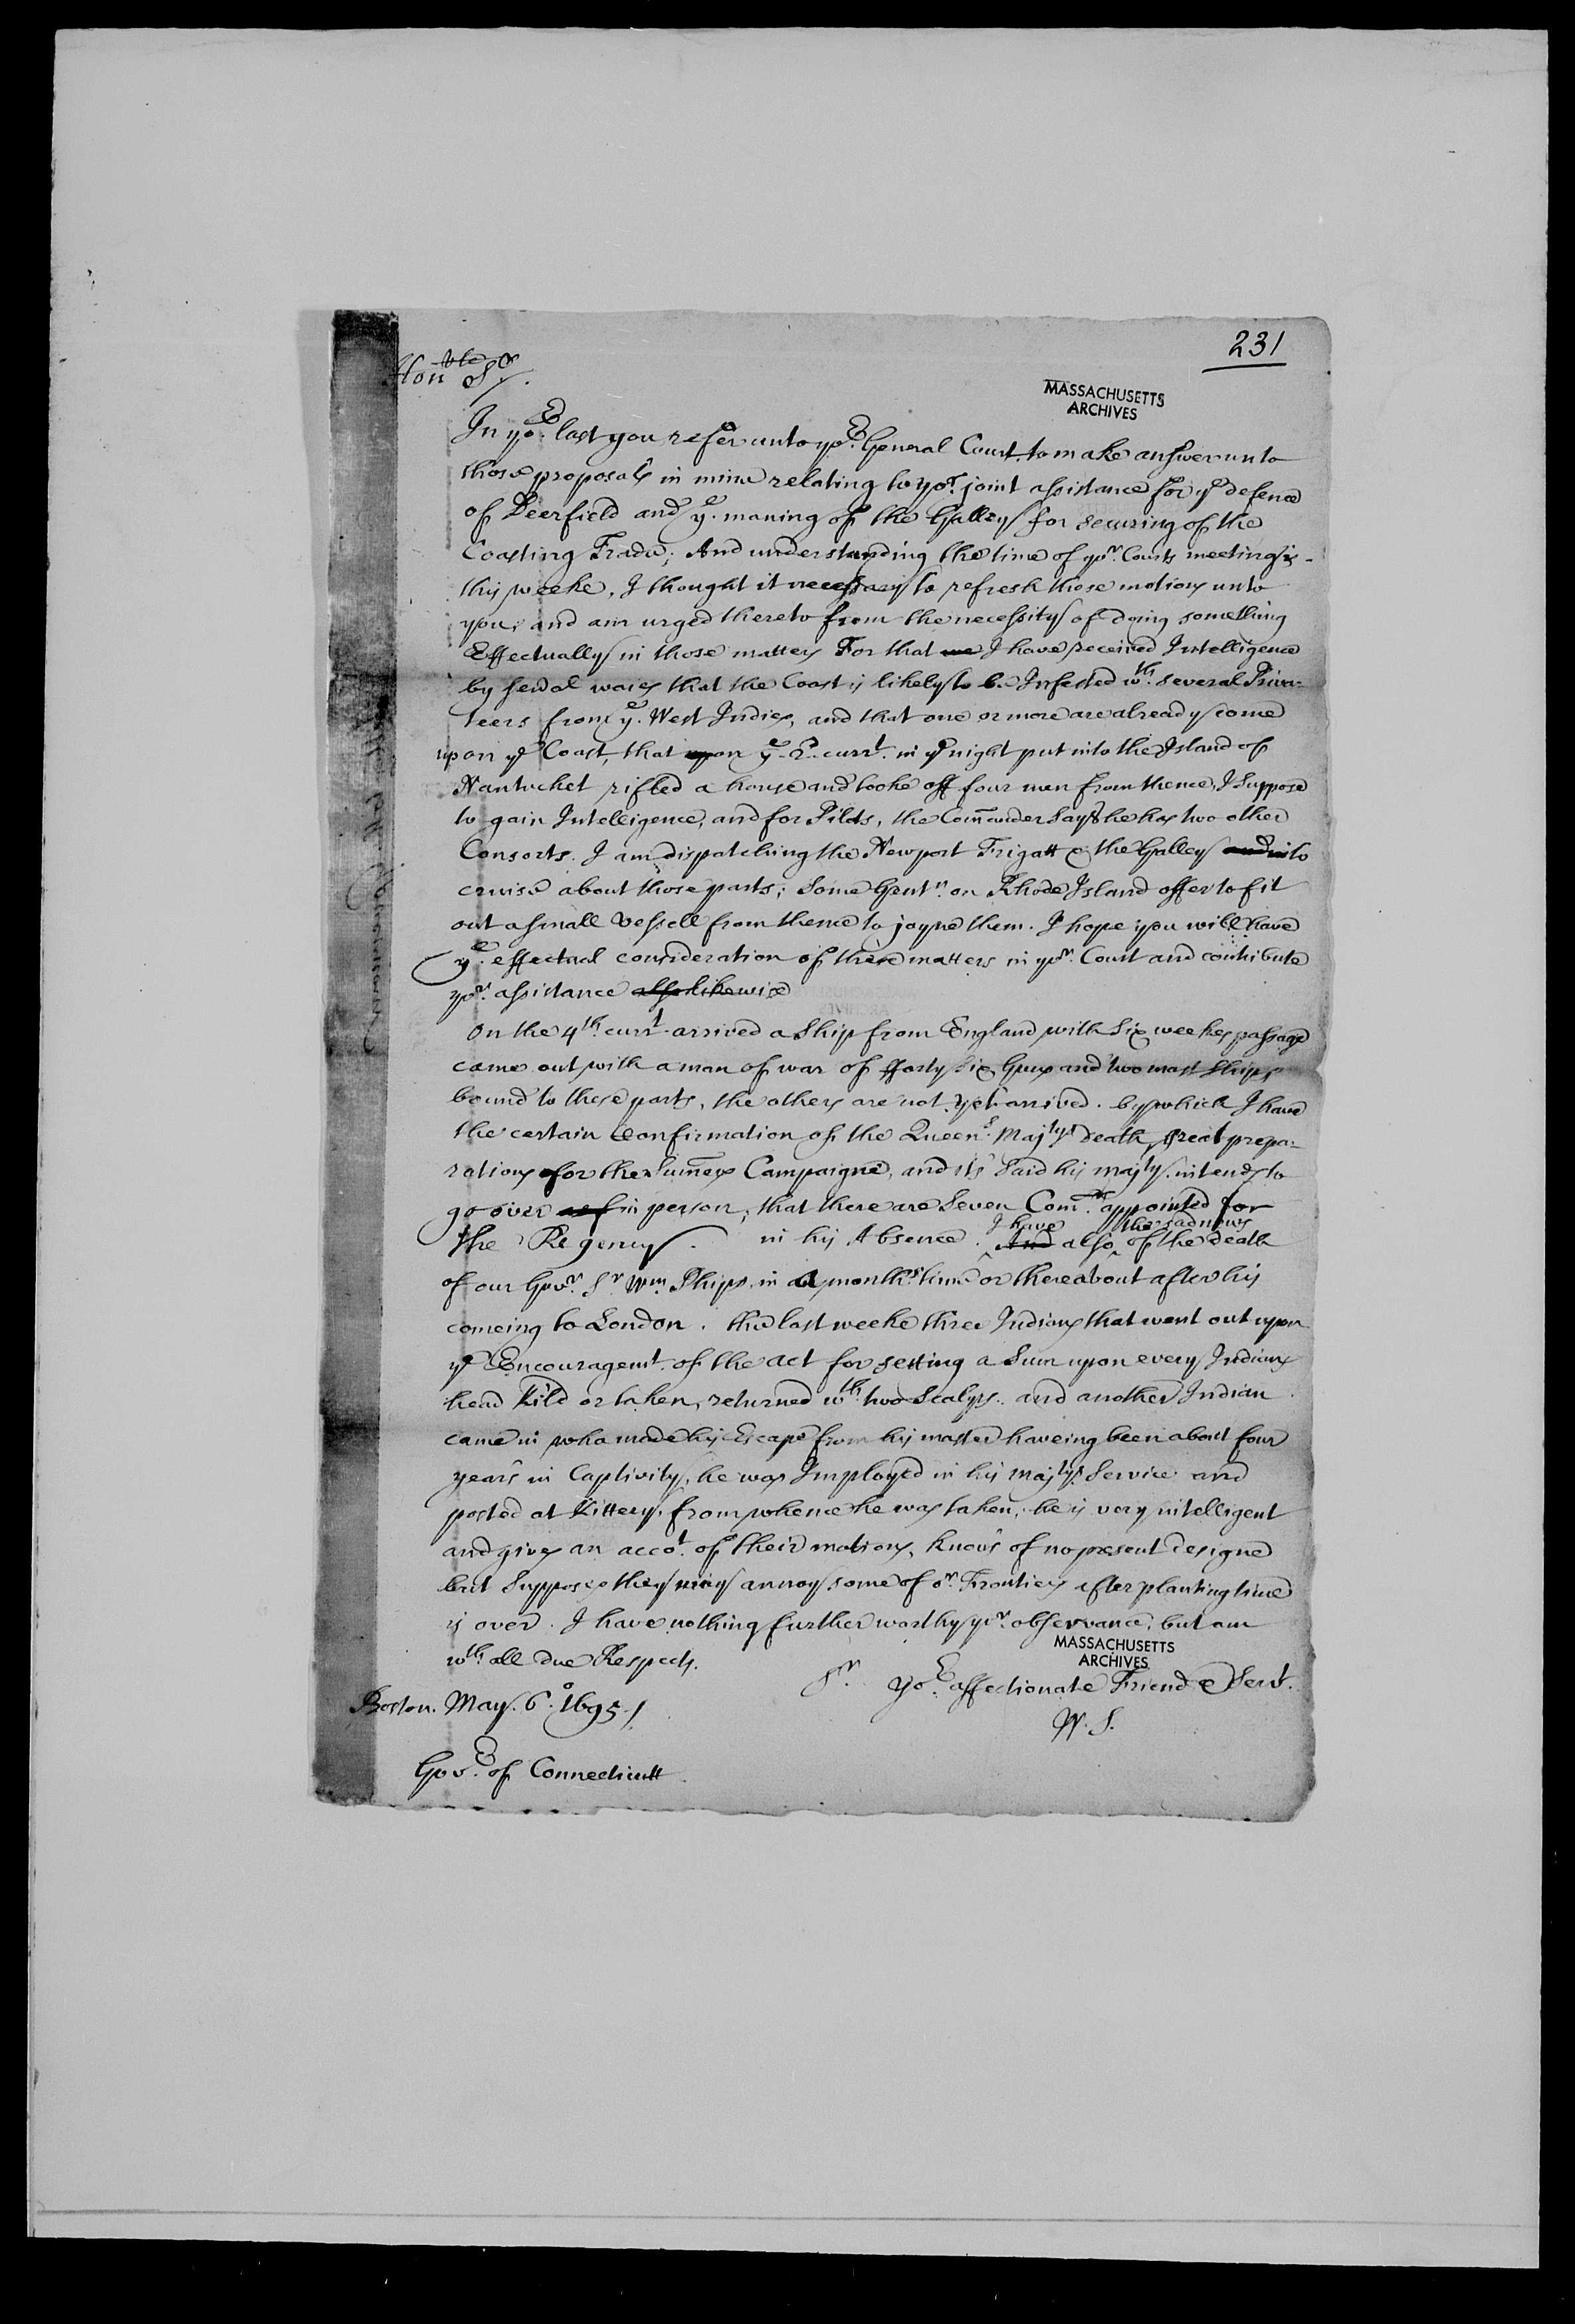 231
MASSACHUSETTS
ARCHIVES
Hon.ble Sr.
In yor. last you refer unto yor. General Court to make answer unto
those proposals in mine relating to yor. joint assistance for ye defence
of Deerfield and ye. maning of the Galley for securing of the
Coasting Trade; And understanding the time of yor. Courts meeting is
this weeke, I thought it necessary to refresh those motions unto
you, and am urged thereto from the necessity of doing something
Effectually in those matters For that we I have received Intelligence
by several waies that the Coast is likely to be Infested wth. several Priva-
teers from ye. West Indies, and that one or more are already come
upon ye Coast, that upon ye 2d. currt. in ye night put into the Island of
Nantucket rifled a house and tooke off four men from thence, I Suppose
to gain Intelligence, and for Pilots, the Comander Says he has two other
Consorts. I am dispatching the Newport Frigatt & the Galley to
cruise about those parts; Some Gentn. on Rhode Island offer to fit
out a small Vessell from thence to joyne them. I hope you will have
ye. effectual consideration of these matters in yor. Court and contribute
yor. assistance also likewise
On the 4th. currt. arrived a Ship from England with Six weekes passage
came out with a man of war of fforty six Guns and two mast Ships
bound to these parts, the others are not yet arrived. by which I have
the certain Confirmation of the Queens. Majtys Death, great prepa-
rations for the Sumers Campaigne, and its Said his Majty. intends to
go over in person; that there are Seven Comrs. appointed for
the Regency. in his Absence. I have And also the sad news of the death
of our Govr. Sr. Wm. Phips in a months time or thereabout after his
comeing to London. the last weeke three Indians that went out upon
ye Encouragemt. of the act for setting a Sum upon every Indians
head kild or taken, returned wth. two Scalps. and another Indian
came in who made his Escape from his master haveing been about four
years in Captivity, he was Imployed in his Majtys. Service and
posted at Kittery, from whence he was taken, he is very intelligent
and gives an accot. of their motions, knows of no present designe
but Supposes they may annoy some of or. Frontiers after planting time
is over. I have nothing further worthy yor. observance, but am
wth. all due Respects.
MASSACHUSETTS
ARCHIVES
Sr. yor. affectionate Friend & Servt.
W. S.
Boston. May. 6o. 1695/
Govr. of Connecticutt